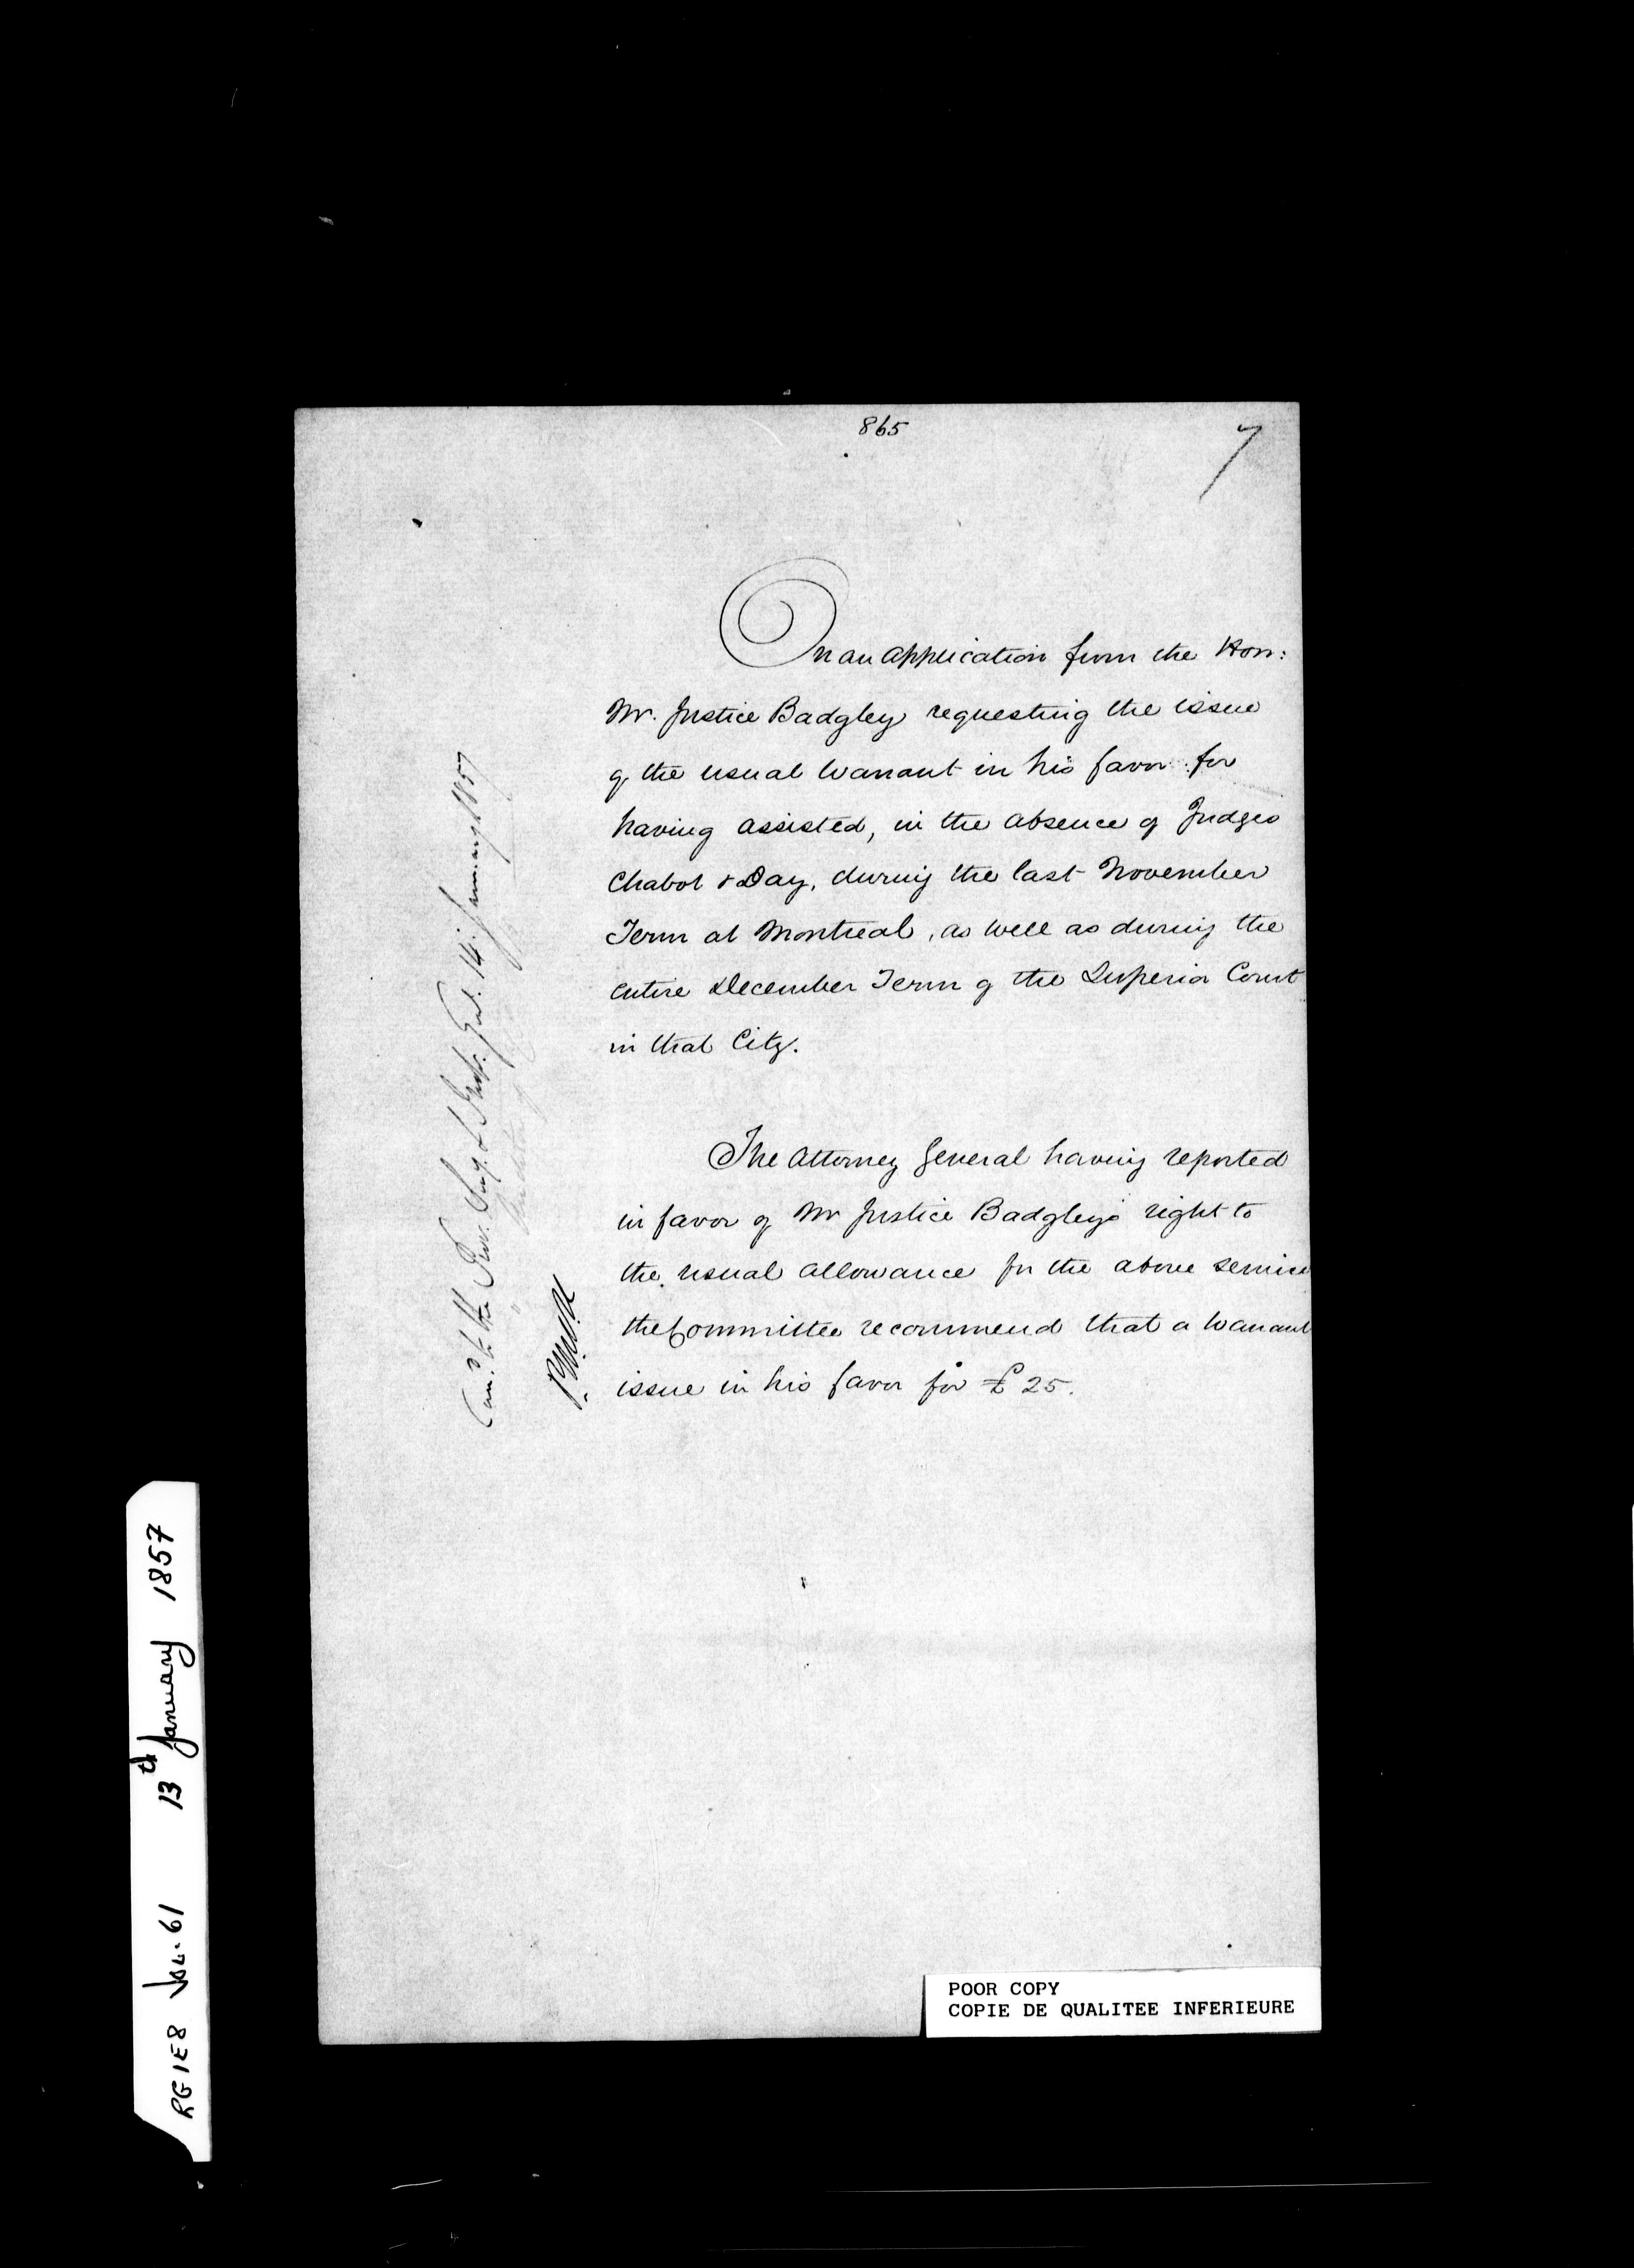 865
7
On an application from the Hon:
Mr. Justice Badgley requesting the issue
of the usual Warrant in his favor for
having assisted, in the absence of Judges
Chabot & Day, during the last November
Term at Montreal, as well as during the
entire December Term of the Superior Court
in that City.
The Attorney General having reported
in favor of Mr Justice Badgley's right to
the usual allowance for the above service
the Committee recommend that a Warrant
issue in his favor for £25.
Com.d to the Prov. Secy. & Insp. Genl. 14. January 1857
13th January 1857
RG1E8 Vol. 61
POOR COPY
COPIE DE QUALITEE INFERIEURE